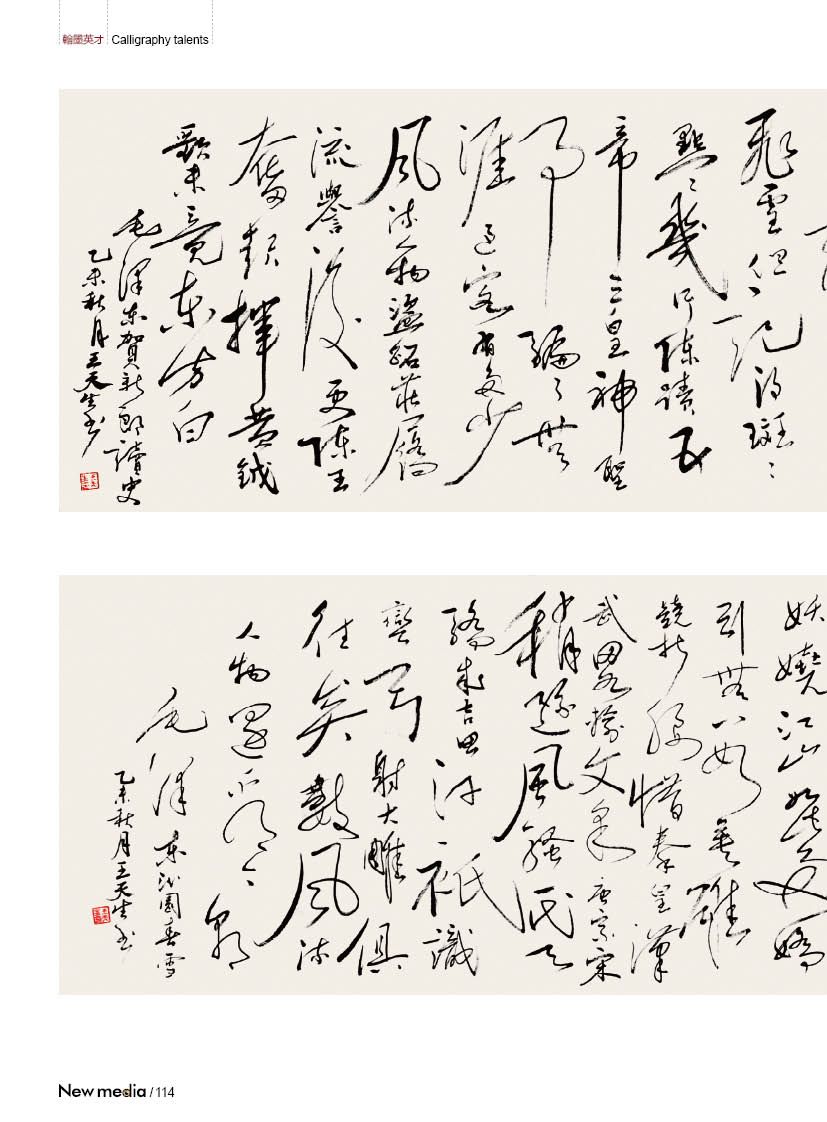 翰墨英才 Calligraphy talents
飛雪但記得斑斑
點點幾行陳蹟五
帝三皇神聖
事騙了無
涯過客有多少
風流人物盜跖莊蹻
流譽後更陳王
奮起揮黃鉞
歌未竟東方白
毛澤東賀新郎讀史
乙未秋月王天生書
妖嬈江山如此多嬌
引無數英雄
競折腰惜秦皇漢
武略輸文采唐宗宋
稍遜風騷代天
驕成吉思汗祇識
彎弓射大雕俱
往矣數風流
人物還看今朝
毛澤東沁園春雪
乙未秋月王天生書
New media / 114